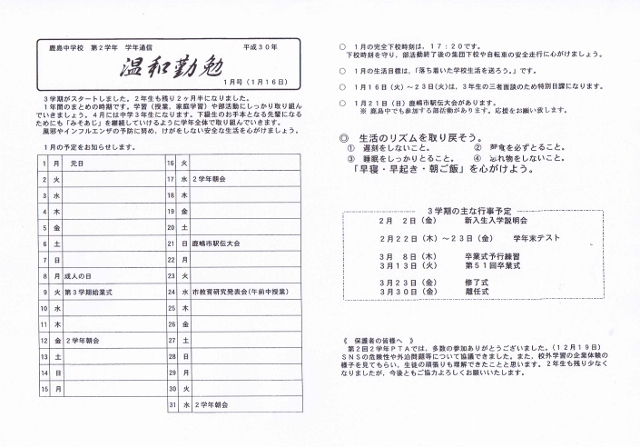 鹿島中学校　第2学年　学年通信　平成３０年
温和勤勉
１月号（１月１６日）
３学期がスタートしました。２年生も残り２ヶ月半になりました。
１年間のまとめの時期です。学習（授業、家庭学習）や部活動にしっかり取り組んで
いきましょう。４月には中学３年生になります。下級生のお手本となる先輩になる
ためにも「みそあじ」を継続していけるように学年全体で取り組んでいきます。
風邪やインフルエンザの予防に努め、けがをしない安全な生活を心がけましょう。
１月の予定をお知らせします。
1 月 元日
2 火
3 水
4 木
5 金
6 土
7 日
8 月 成人の日
9 火 第３学期始業式
10 水
11 木
12 金 ２学年朝会
13 土
14 日
15 月
16 火
17 水 ２学年朝会
18 木
19 金
20 土
21 日 鹿嶋市駅伝大会
22 月
23 火
24 水 市教育研究発表会（午前中授業）
25 木
26 金
27 土
28 日
29 月
30 火
31 水 ２学年朝会
○　１月の完全下校時刻は、１７：２０です。
下校時刻を守り、部活動終了後の集団下校や自転車の安全走行に心がけましょう。
○　１月の生活目標は、「落ち着いた学校生活を送ろう。」です。
○　１月１６日（火）～２３日（火）は、３年生の三者面談のため特別日課になります。
○　１月２１日（日）鹿嶋市駅伝大会があります。
※ 鹿島中でも参加する部活動があります。応援をお願い致します。
◎　生活のリズムを取り戻そう。
①　遅刻をしないこと。　②　　を必ずとること。
③　睡眠をしっかりとること。　④　忘れ物をしないこと。
「早寝・早起き・朝ご飯」を心がけよう。
３学期の主な行事予定
２月　２日（金）　新入生入学説明会
２月２２日（木）～２３日（金）　学年末テスト
３月　８日（木）　卒業式予行練習
３月１３日（火）　第５１回卒業式
３月２３日（金）　修了式
３月３０日（金）　離任式
《　保護者の皆様へ　》
第２回２学年ＰＴＡでは、多数の参加ありがとうございました。（１２月１９日）
ＳＮＳの危険性や外泊問題等について協議できました。また、校外学習の企業体験の
様子を見てもらい、生徒の頑張りも理解できたことと思います。２年生も残り少なく
なりましたが、今後ともご協力よろしくお願いいたします。